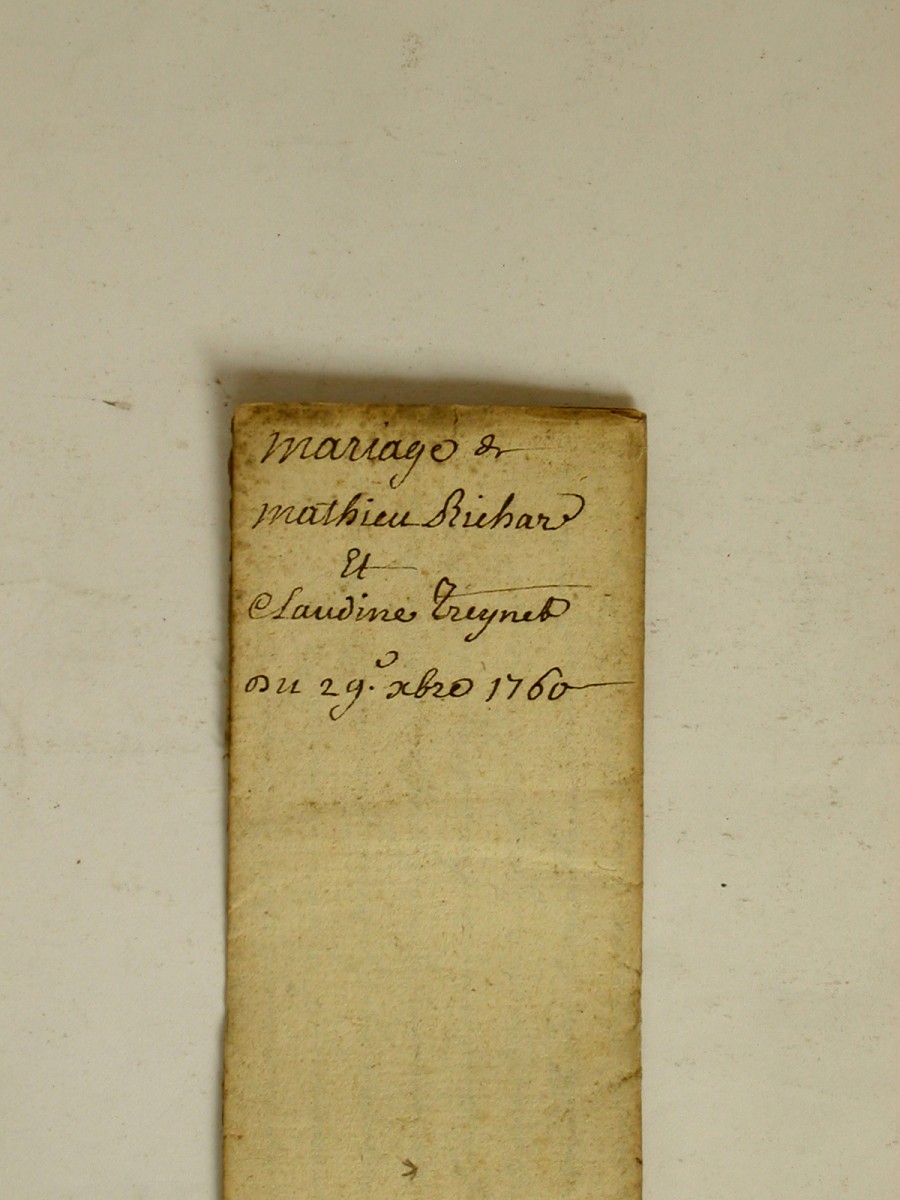 mariage de
mathieu Richard
Et
Claudine Treynet
du 29.e xbre 1760